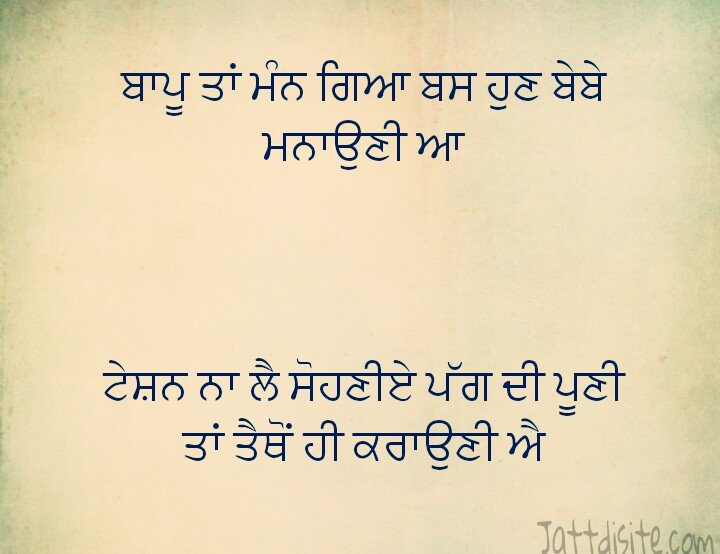 ਬਾਪੂ ਤਾਂ ਮੰਨ ਗਿਆ ਬਸ ਹੁਣ ਬੇਬੇ
ਮਨਾਉਣੀ ਆ
ਟੇਸ਼ਨ ਨਾ ਲੈ ਸੋਹਣੀਏ ਪੱਗ ਦੀ ਪੂਣੀ
ਤਾਂ ਤੈਥੋਂ ਹੀ ਕਰਾਉਣੀ ਐ
Jattdisite.com